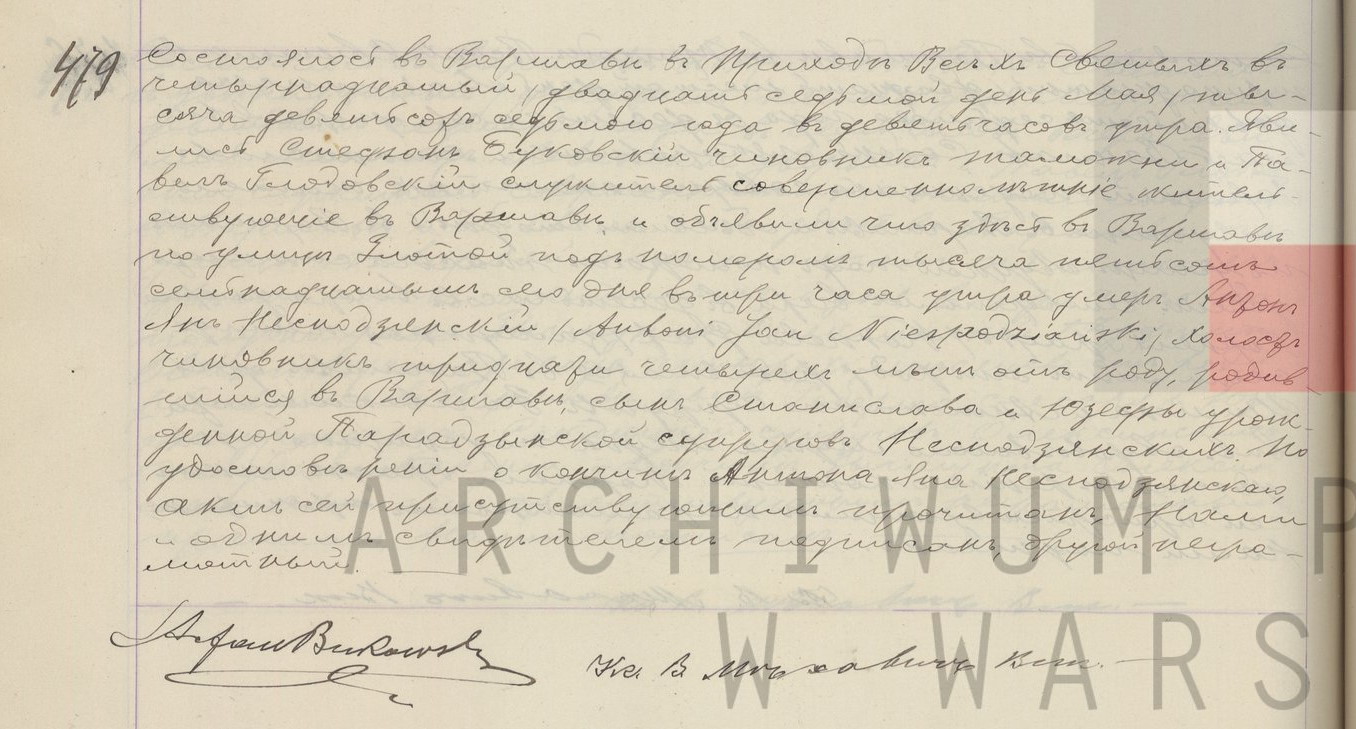 479
Состоялось въ Варшавѣ въ Приходѣ Всѣхъ Святыхъ въ
четырнадцатый / двадцать седьмой день Мая / ты-
сяча девятьсотъ седьмого года въ девять часовъ утра. Яви-
лись Стефанъ Буковскій чиновникъ таможни и Па-
велъ Глодовскій служитель совершеннолѣтніе житель-
ствующіе въ Варшавѣ, и объявили что здѣсь въ Варшавѣ
по улицѣ Злотой подъ номеромъ тысяча пятьсотъ
семнадцатымъ сего дня въ три часа утра умеръ Антонъ
Янъ Несподзянскій / Antoni Jan Niespodziański / холостъ
чиновникъ тридцати четырехъ лѣтъ отъ роду, родив-
шійся въ Варшавѣ, сынъ Станислава и Юзефы урож-
денной Парадзынской супруговъ Несподзянскихъ. По
удостовѣреніи о кончинѣ Антона Яна Несподзянскаго,
актъ сей присутствующимъ прочитанъ, Нами
и однимъ свидѣтелемъ подписанъ, другой негра-
мотный.
Stefan Bukowski
Кс. В
ARCHIWUM P
W WARS